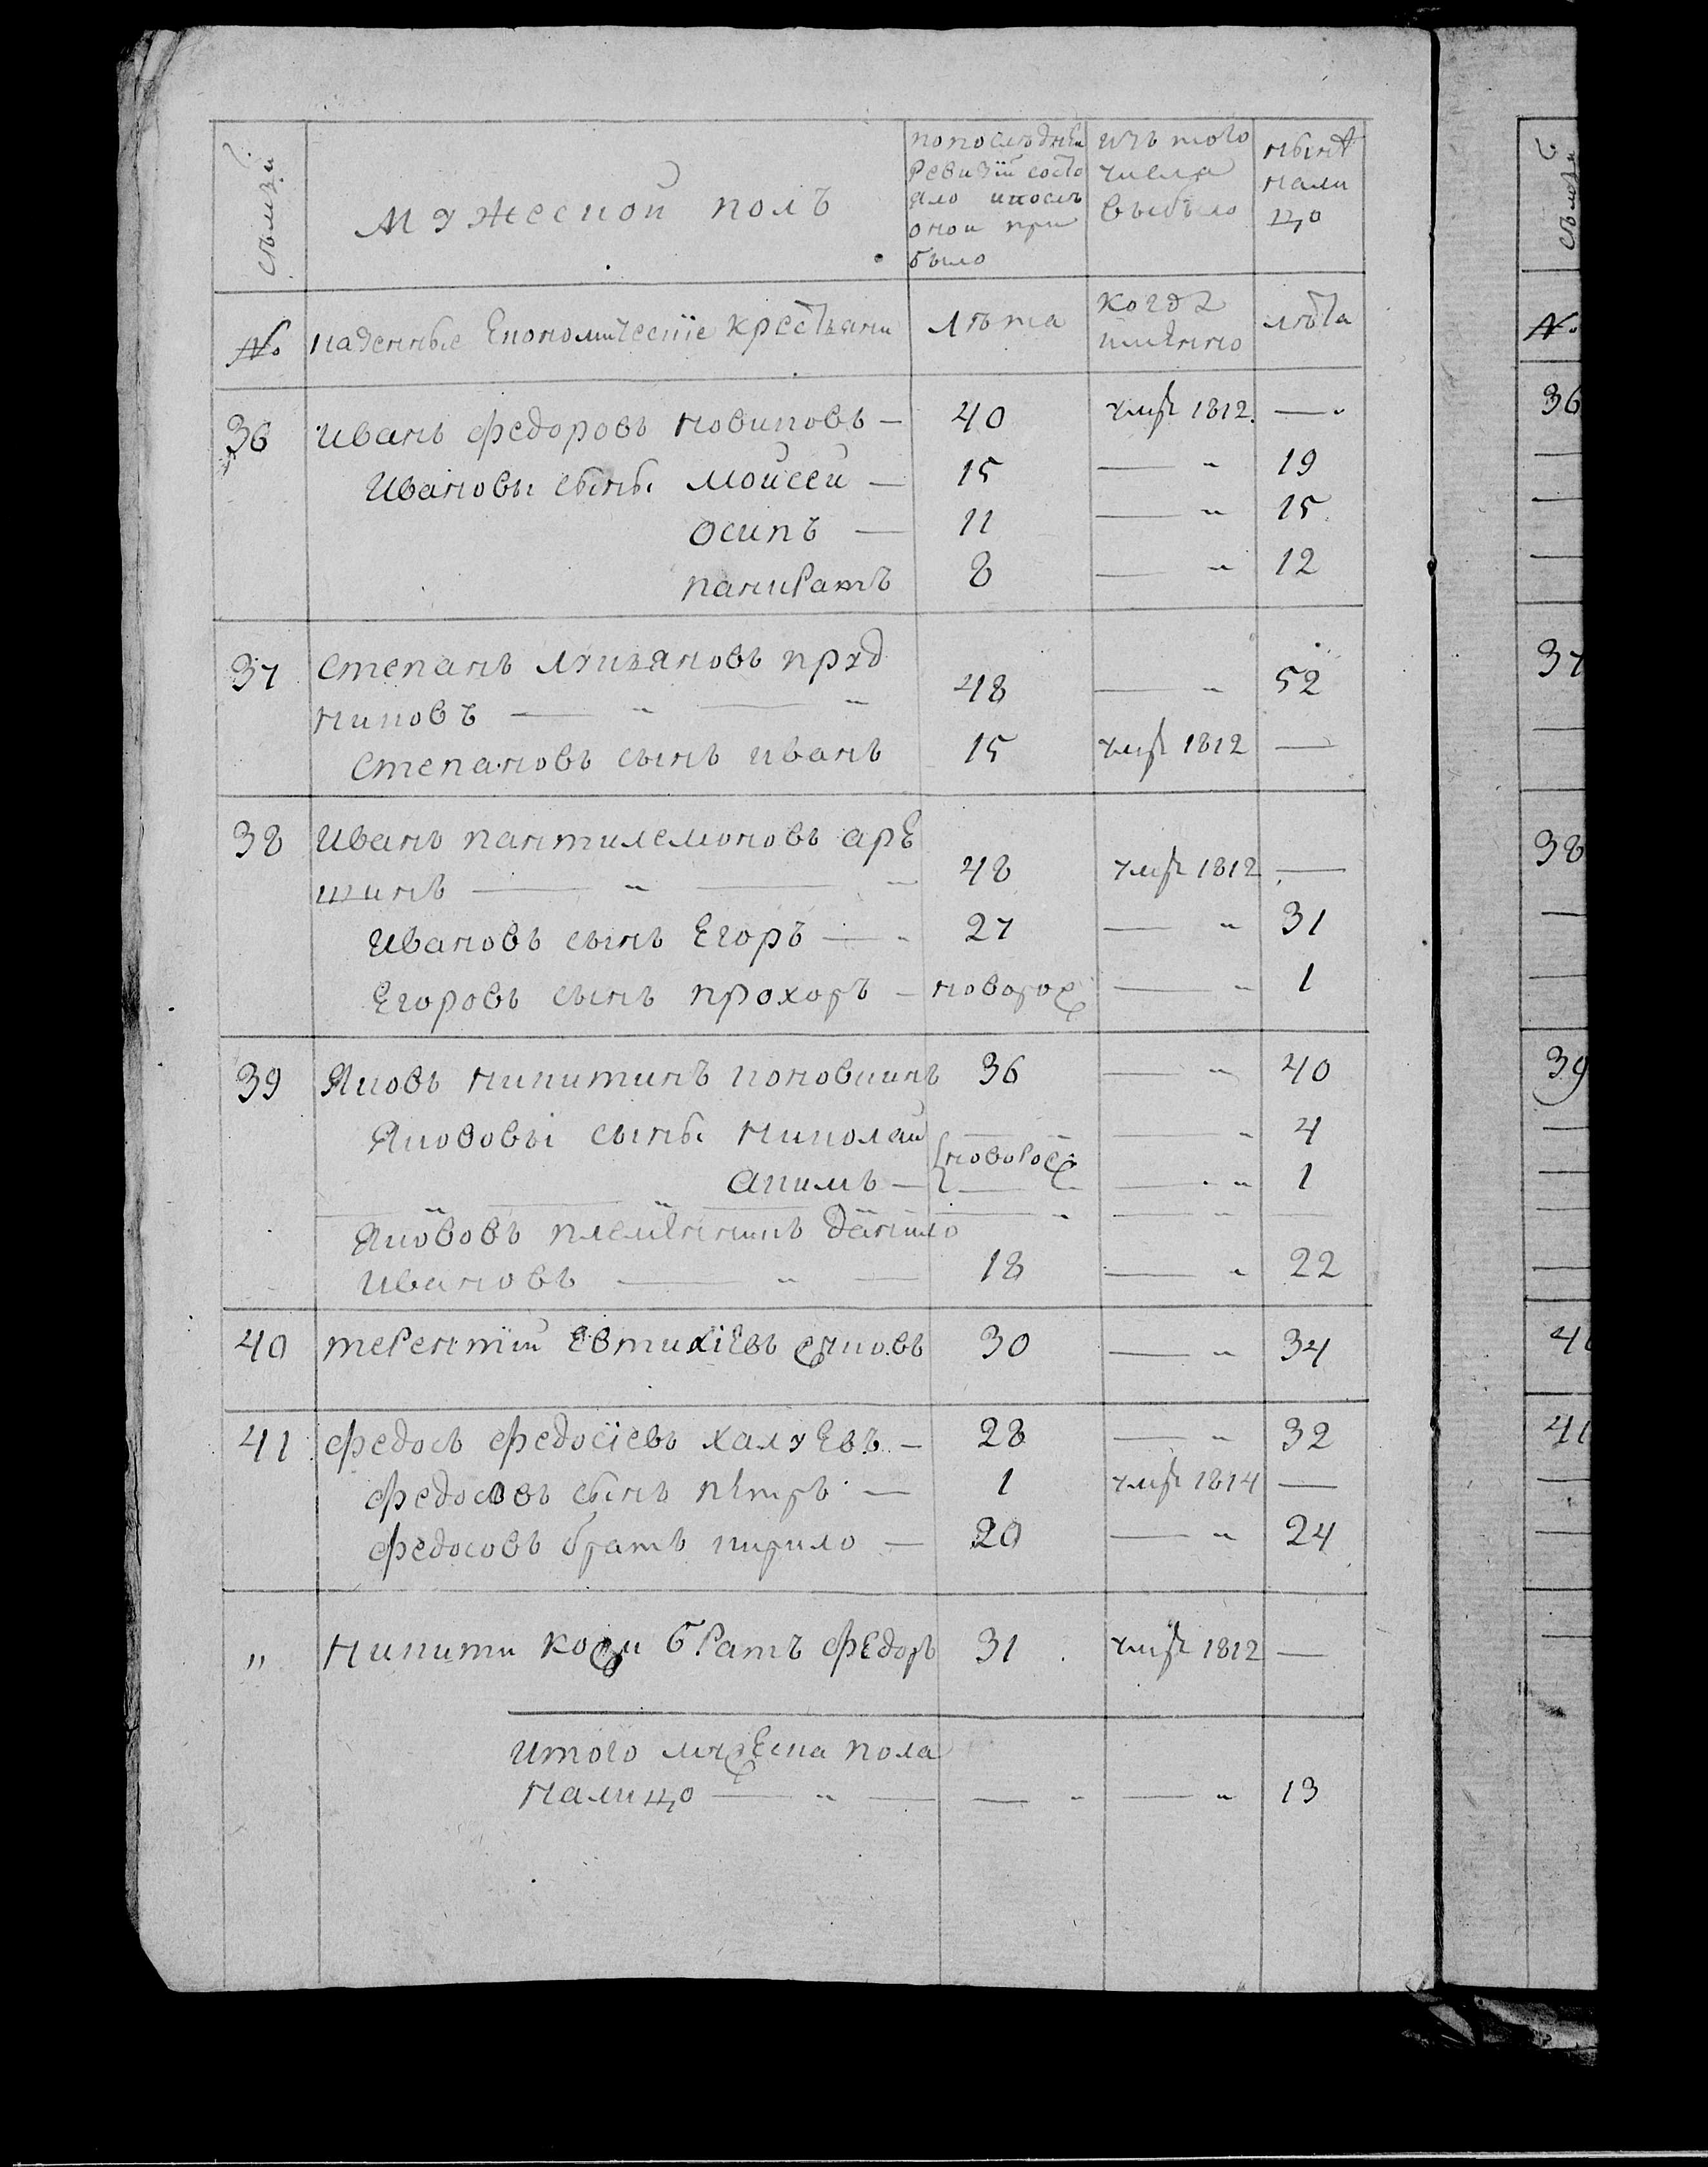 семьи
мужеской полъ
по последней
ревизїи состо
яло и после
оной при
было
изъ того
числа
выбыло
нынѣ
нали
цо
семьи
№
казенные Економическїе крестьяни
лѣта
когда
имянно
лѣта
№
36 Иванъ федоровъ новиковъ — 40 умре 1812. — 36
Ивановы сыны моисей — 15 — „ 19
осипъ — 11 — „ 15
панкратъ 8 — „ 12
37 степанъ лукьяновъ пруд 37
никовъ — „ — „ 48 — „ 52
степановъ сынъ иванъ 15 умре 1812 —
38 Иванъ пантилемоновъ арЕ 38
шинъ — „ — „ 48 умре 1812 —
Ивановъ сынъ Егоръ — „ 27 — „ 31
Егоровъ сынъ прохоръ — новорож — „ 1
39 Яковъ никитинъ коновшинъ 36 — „ 40 39
Якововы сыны николай — — „ 4
новорож
акимъ — — — „ 1
Яковovъ племянникъ данило
Ивановъ — „ — 18 — „ 22
40 терентїй Евтихїевъ жуковъ 30 — „ 34 4
41 федосъ федосїевъ халуЕвъ — 28 — „ 32 41
федосовъ сынъ пЕтръ — 1 умре 1814 —
федосовъ братъ кирило — 20 — „ 24
„ никити кози братъ фЕдоръ 31 умре 1812 —
Итого мужеска пола
налицо — „ — — „ — „ 13